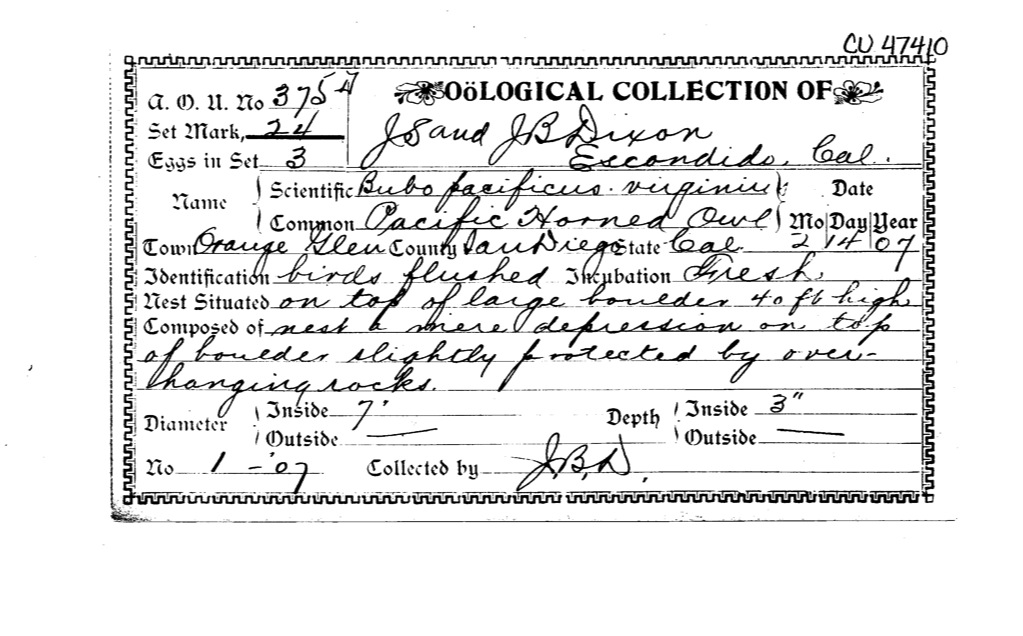 CU 47410
A. O. U. No 375
OöLOGICAL COLLECTION OF
Set Mark, 24
J S and J B Dixon
Escondido, Cal.
Eggs in Set 3
Name
Scientific Bubo pacificus. virginiu
Date
Common Pacific Horned Owl
Mo Day Year
Town Orange Glen County San Diego State Cal. 2 14 07
Identification birds flushed Incubation Fresh.
Nest Situated on top of large boulder 40 ft high
Composed of nest a mere depression on top
of boulder slightly protected by over-
hanging rocks.
Diameter
Inside 7"
Outside —
Depth
Inside 3"
Outside —
No 1 - '07 Collected by J.B.D.